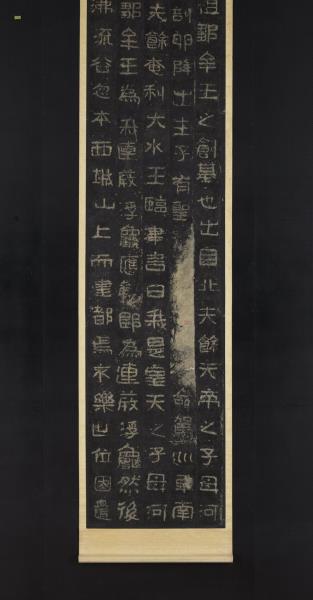 祖鄒牟王之創基也出自北夫餘天帝之子母河
剖卵降世生子有聖命駕巡車南
夫餘奄利大水王臨津言曰我是皇天之子母河
鄒牟王為我連葭浮龜應聲即為連葭浮龜然後
沸流谷忽本西城山上而建都焉不樂世位因遣